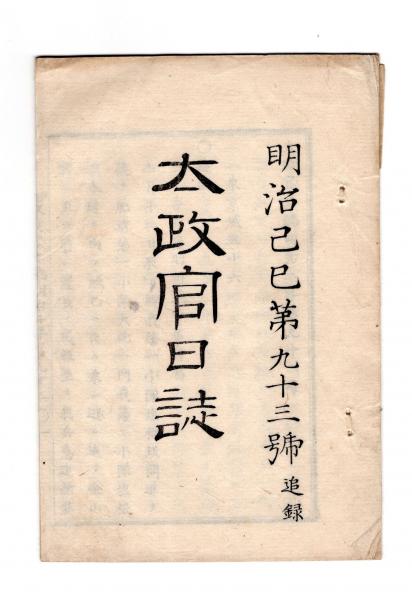 明治己巳第九十三號 追録
太政官日誌